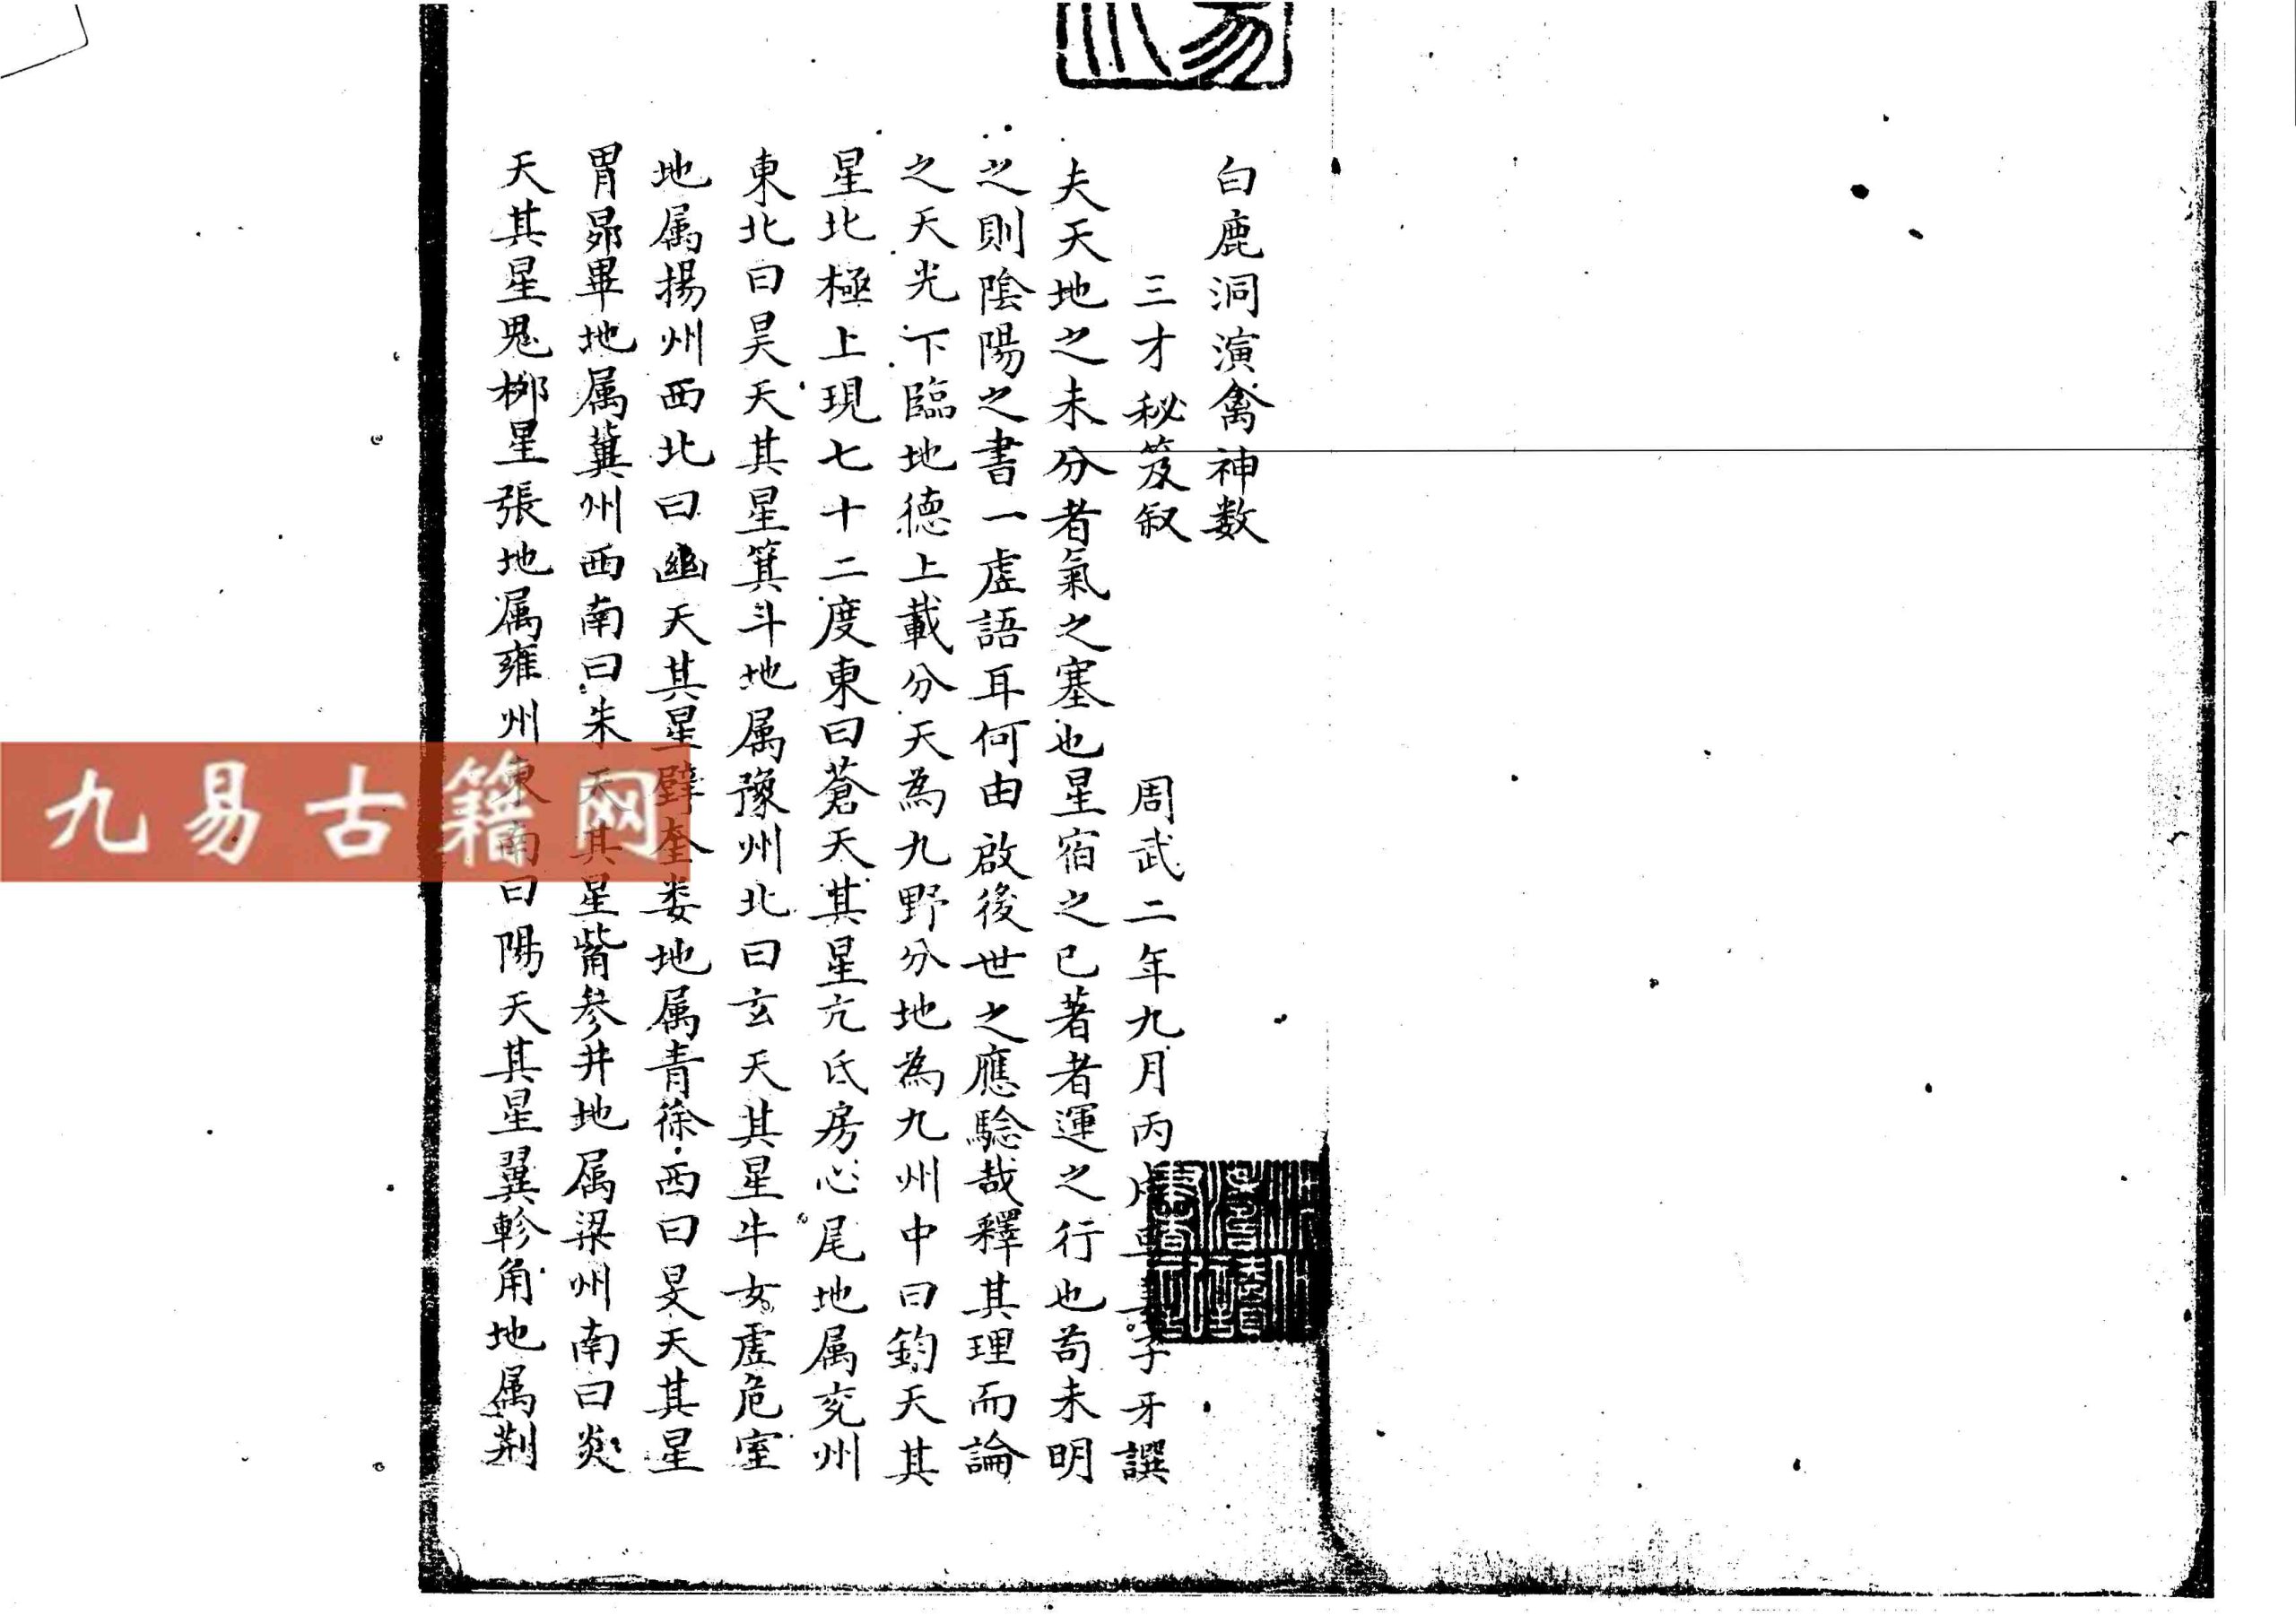 白鹿洞演禽神数
三才秘笈叙
周武二年九月丙 子牙譔
夫天地之未分者氣之塞也星宿之已著者運之行也苟未明
之則陰陽之書一虛語耳何由啟後世之應驗哉釋其理而論
之天光下臨地德上載分天為九野分地為九州中曰鈞天其
星北極上現七十二度東曰蒼天其星亢氐房心尾地属兗州
東北曰昊天其星箕斗地属豫州北曰玄天其星牛女虛危室
地属揚州西北曰幽天其星壁奎娄地属青徐西曰旻天其星
胃昴畢地属冀州西南曰朱天其星觜参井地属梁州南曰炎
天其星鬼栁星張地属雍州東南曰陽天其星翼軫角地属荆
九易古籍网